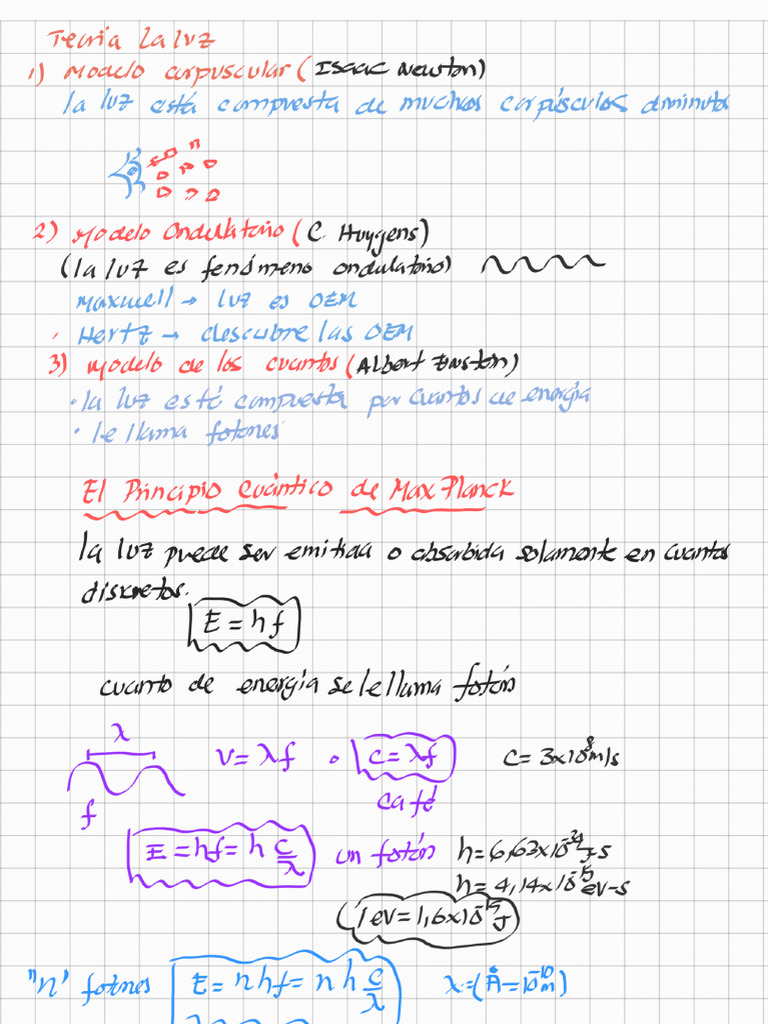 Teoría La luz
1) Modelo corpuscular (Isaac Newton)
la luz está compuesta de muchos corpúsculos diminutos
2) Modelo Ondulatorio (C. Huygens)
(la luz es fenómeno ondulatorio)
Maxwell → luz es OEM
Hertz → descubre las OEM
3) Modelo de los cuantos (Albert Einstón)
• la luz está compuesta por cuantos de energía
• le llama fotones
El Principio Cuántico de Max Planck
la luz puede ser emitida o absorbida solamente en cuantos
discretos.
E = hf
cuanto de energía se le llama fotón
λ
f
v = λf o c = λf c = 3x10⁸ m/s
café
E = hf = h c/λ un fotón h = 6,63x10⁻³⁴ J s
h = 4,14x10⁻¹⁵ eV-s
(1 eV = 1,6x10⁻¹⁹ J)
"n" fotones E = nhf = nh c/λ λ = (Å = 10⁻¹⁰ m)